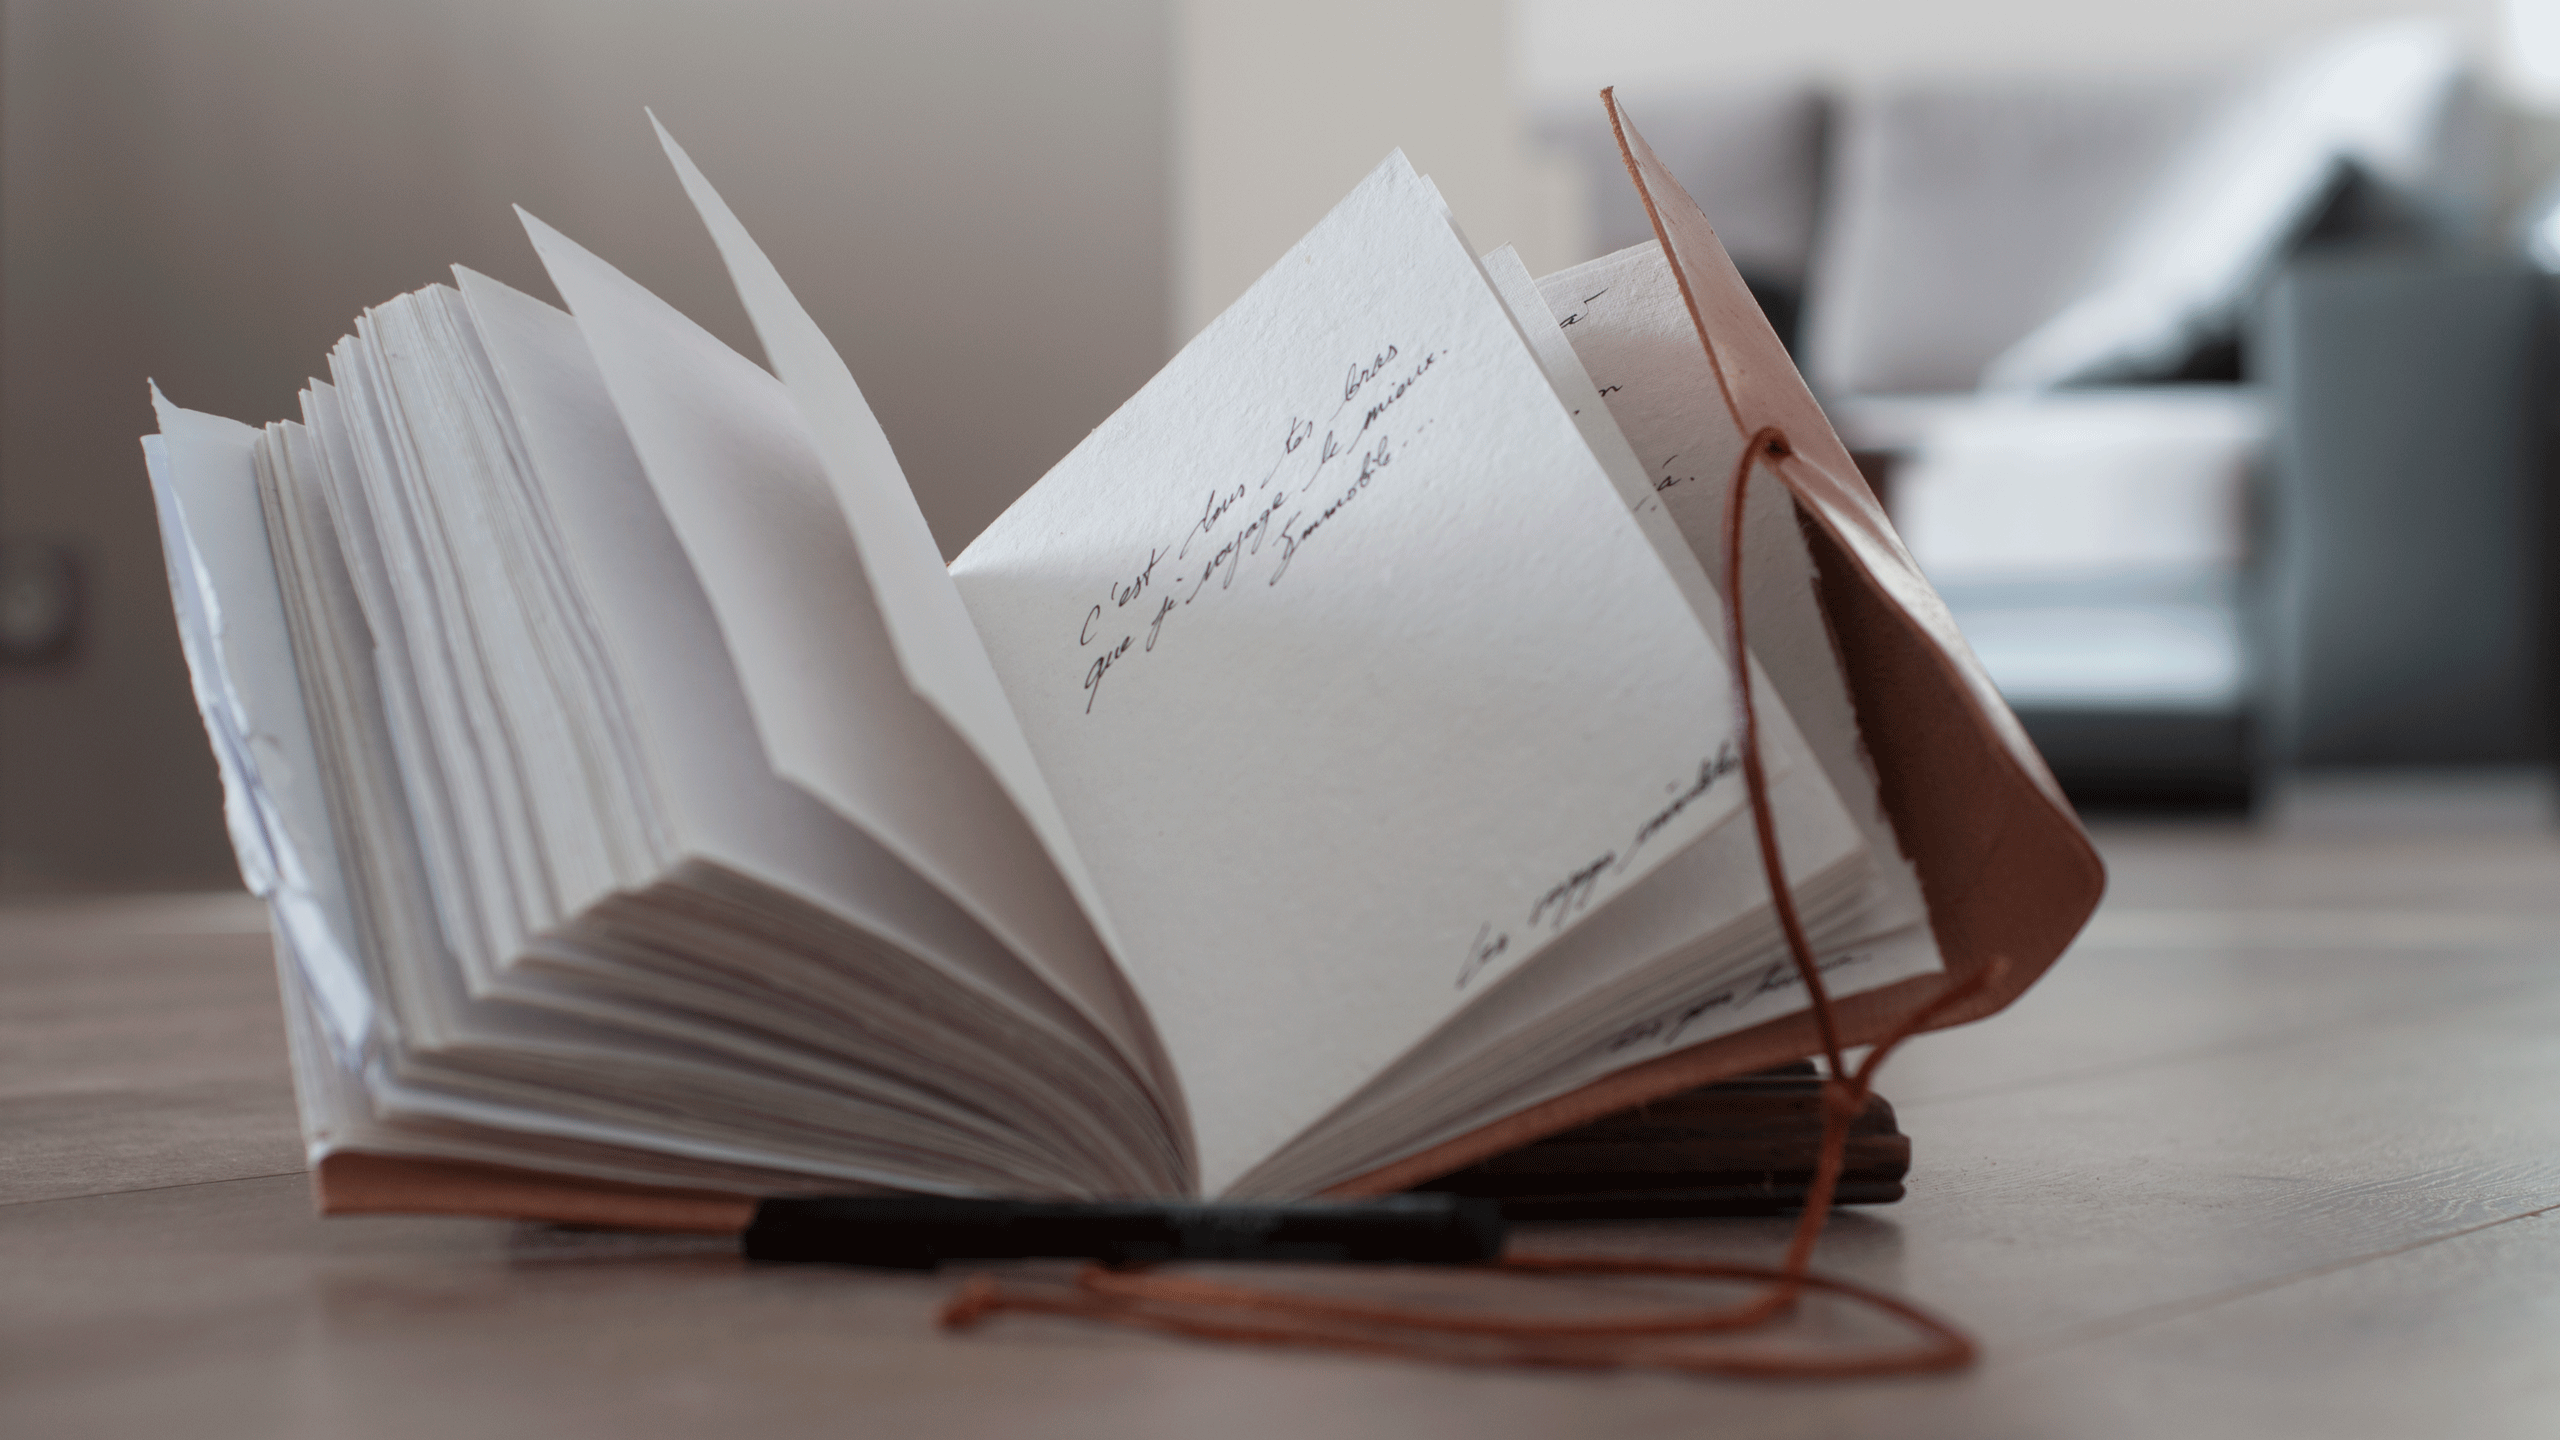 C'est dans tes bras
que je voyage le mieux.
Immobile...
Les voyages immobiles
à
n
à.